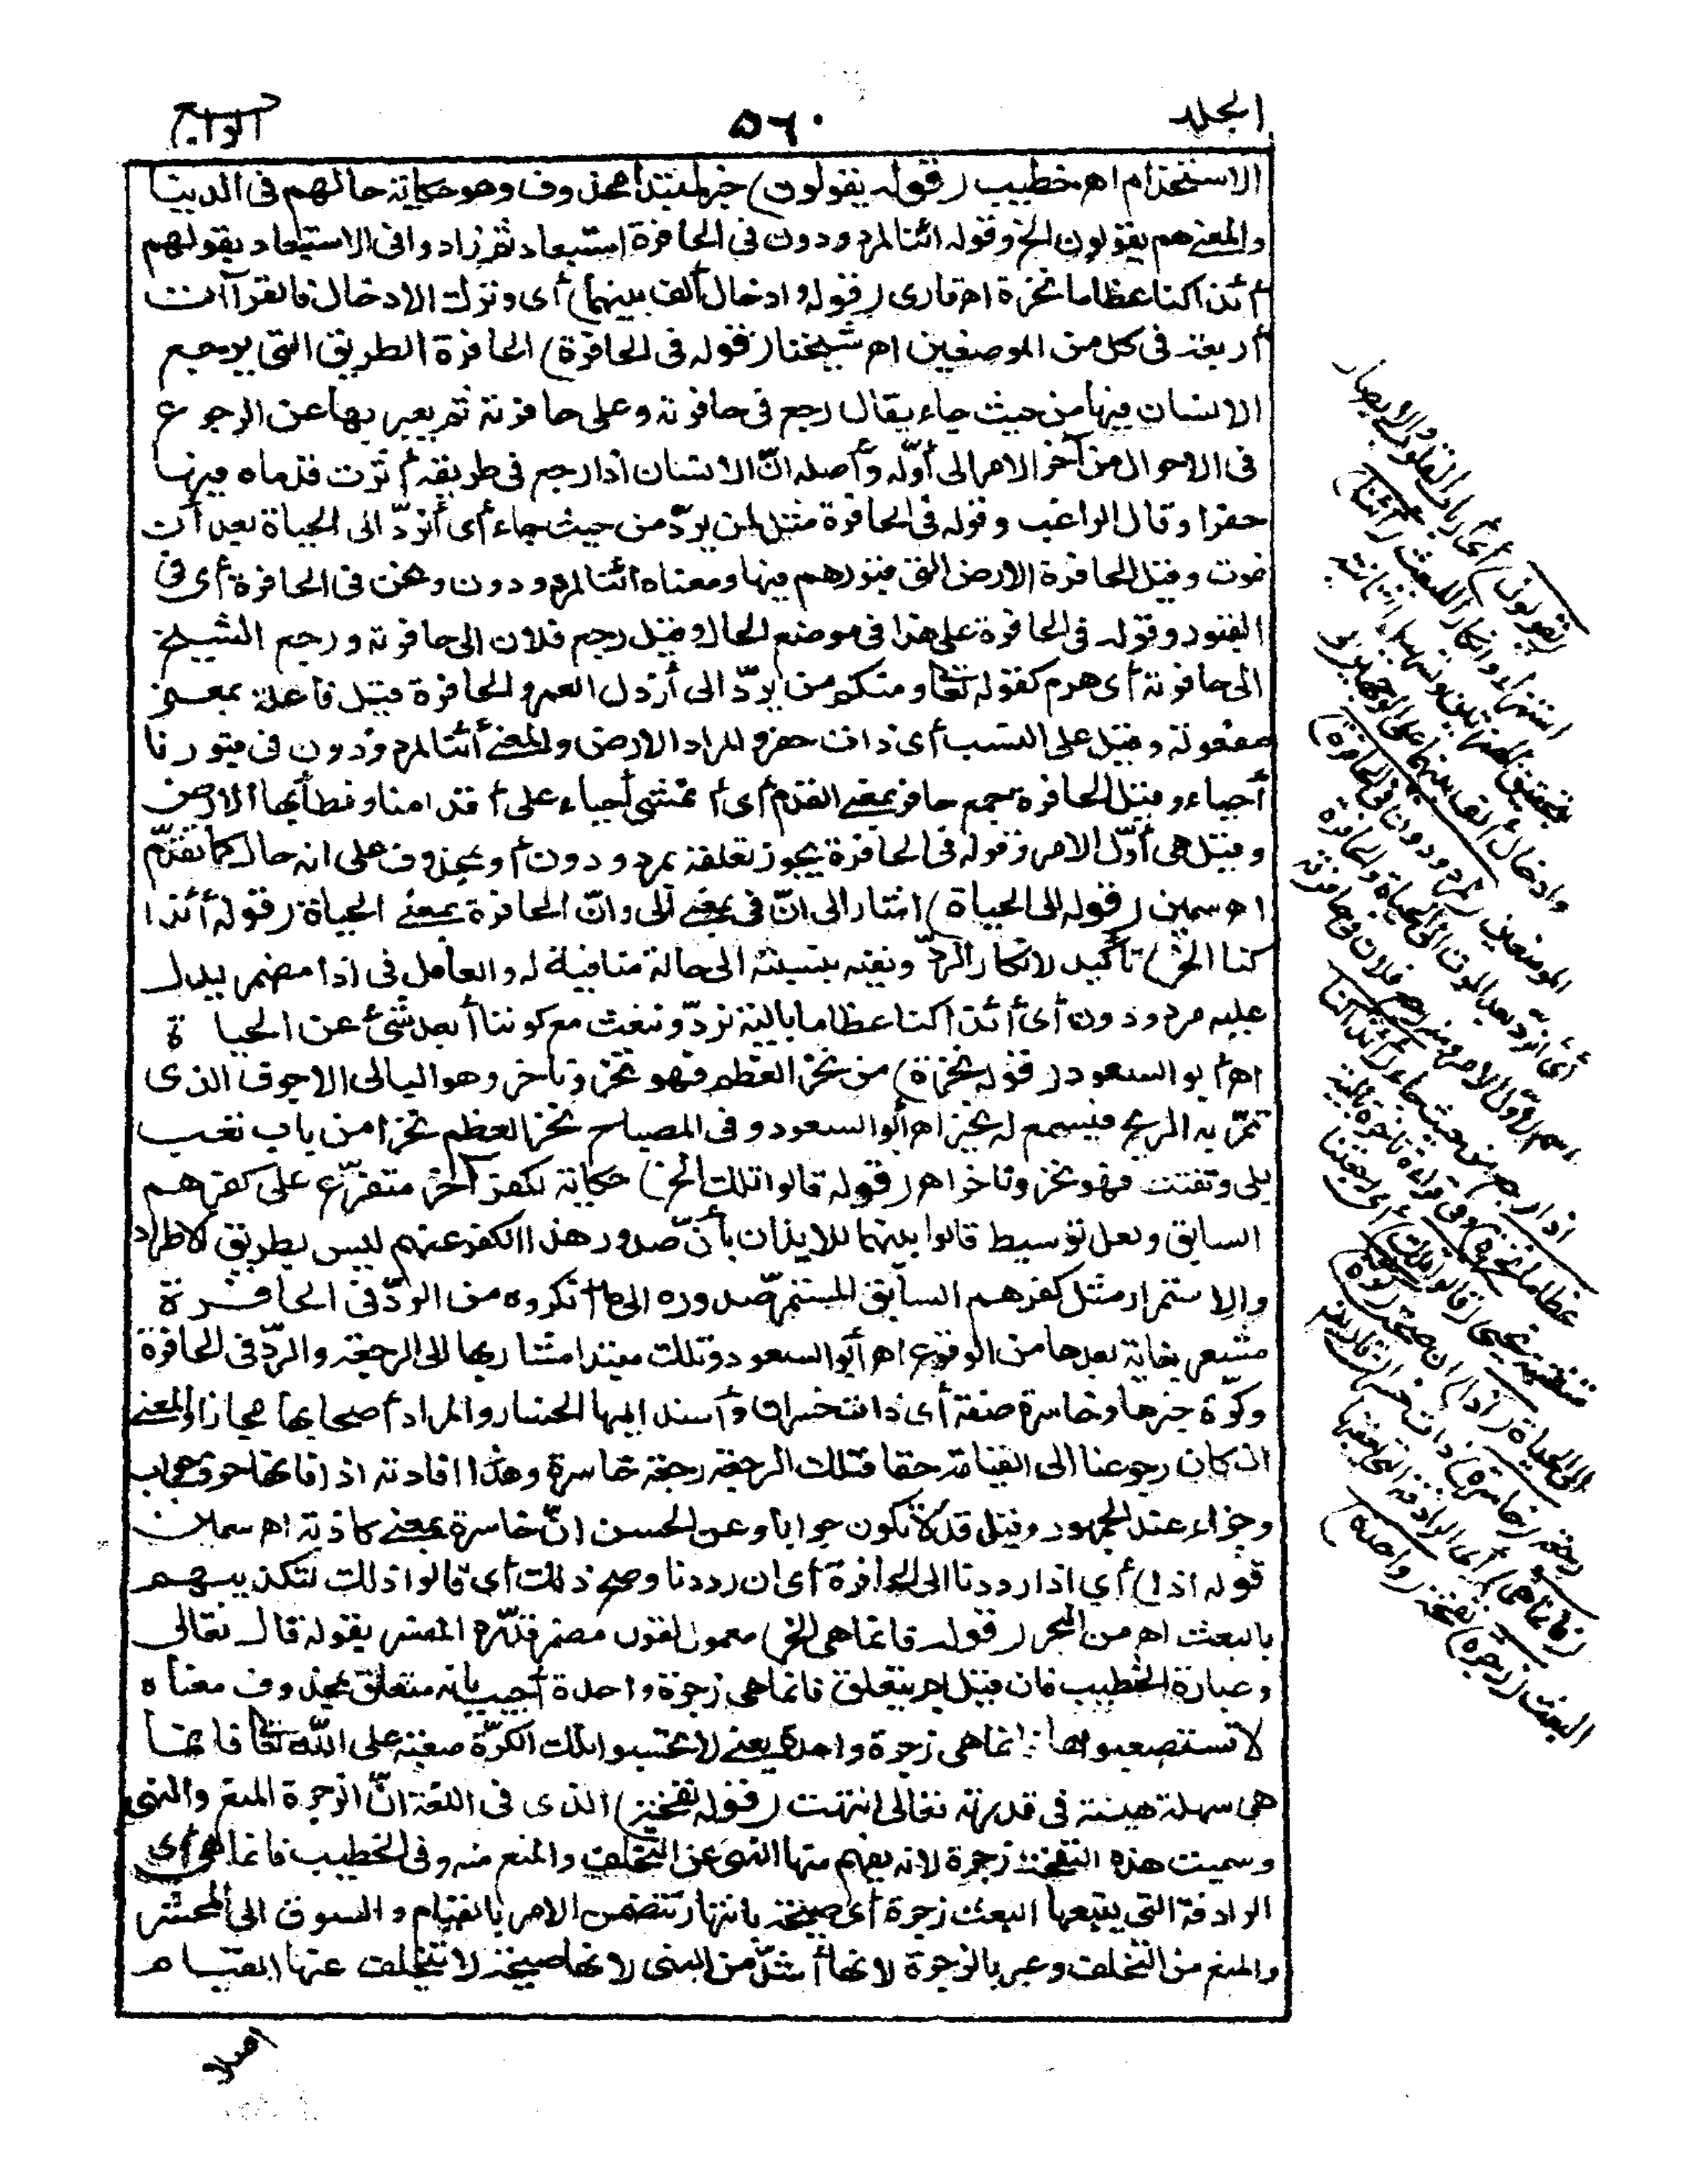 المجلد
٥٦٠
الرابع
الاستخدام اه خطيب (قوله يقولون) خبر لمبتدأ محذوف وهو حكاية حالهم فى الدنيا
والمعنى هم يقولون الخ وقوله ائنا لمردودون فى الحافرة استبعاد ثم زادوا فى الاستبعاد بقولهم
أئذا كنا عظاما نخرة اه قارى (قوله وادخال ألف بينهما) أى وترك الادخال فالقراآت
أربعة فى كل من الموضعين اه شيخنا (قوله فى الحافرة) الحافرة الطريق التى يرجع
الانسان فيها من حيث جاء يقال رجع فى حافرته وعلى حافرته ثم يعبر بها عن الرجوع
فى الاحوال من آخر الامر الى أوّله وأصله انّ الانسان اذا رجع فى طريقه أثرت قدماه فيها
حفرا وقال الراغب وقوله فى الحافرة مثل لمن يردّ من حيث جاء أى أنردّ الى الحياة بعد أن
نموت وقيل الحافرة الارض التى قبورهم فيها ومعناه ائنا لمردودون ونحن فى الحافرة أى فى
القبور وقوله فى الحافرة على هذا فى موضع الحال وقيل رجع فلان الى حافرته ورجع الشيخ
الى حافرته أى هرم كقوله تعالى ومنكم من يردّ الى أرذل العمر والحافرة قيل فاعلة بمعنى
مفعولة وقيل على النسب أى ذات حفر والمراد الارض والمعنى أئنا لمردودون فى قبورنا
أحياء وقيل الحافرة جمع حافر بمعنى القدم أى أنمشى أحياء على أقدامنا ونطأ بها الارض
وقيل هى أوّل الامر وقوله فى الحافرة يجوز تعلقه بمردودون أو بمحذوف على انه حال كما تقدّم
اه سمين (قوله الى الحياة) اشار الى انّ فى بمعنى الى وانّ الحافرة بمعنى الحياة (قوله أئذا
كنا الخ) تأكيد لانكار الردّ ونفيه بنسبته الى حالة منافية له والعامل فى اذا مضمر يدل
عليه مردودون أى أئذا كنا عظاما بالية نردّ ونبعث مع كوننا أبعد شئ عن الحياة
اه أبو السعود (قوله نخرة) من نخر العظم فهو نخر وناخر وهو البالى الاجوف الذى
تمرّ به الريح فيسمع له نخير اه أبو السعود وفى المصباح نخر العظم نخرا من باب تعب
بلى وتفتت فهو نخر وناخر اه (قوله قالوا تلك الخ) حكاية لكفر آخر متفرّع على كفرهم
السابق ولعل توسيط قالوا بينهما للايذان بأنّ صدور هذا الكفر عنهم ليس بطريق الاطراد
والاستمرار مثل كفرهم السابق المستمرّ صدوره الى ما أنكروه من الردّ فى الحافرة
مشعر بغاية بعدها من الوقوع اه أبو السعود وتلك مبتدأ مشار بها الى الرجفة والردّ فى الحافرة
وكرّة خبرها وخاسرة صفة أى ذات خسران وأسند اليها الخسار والمراد أصحابها مجازا والمعنى
ان كان رجوعنا الى القيامة حقا فتلك الرجعة رجعة خاسرة وهذا افادته اذا فانها حرف جواب
وجزاء عند الجمهور وقيل قد لا تكون جوابا وعن الحسن انّ خاسرة بمعنى كاذبة اه سمين
قوله اذا) أى اذا رددنا الى الحافرة أى ان رددنا وصح ذلك أى قالوا ذلك لتكذيبهم
بالبعث اه من البحر (قوله فانما هى الخ) معمول لقول مضمر قدّره المفسر بقوله قال تعالى
وعبارة الخطيب فان قيل بم يتعلق فانما هى زجرة واحدة أجيب بانه متعلق بمحذوف معناه
لا تستصعبوها فانما هى زجرة واحدة يعنى لا تحسبوا تلك الكرّة صعبة على الله تعالى فانها
هى سهلة هينة فى قدرته تعالى انتهت (قوله نفخة) الذى فى اللغة انّ الزجرة المنع والنهى
وسميت هذه النفخة زجرة لانه يفهم منها النهى عن التخلف والمنع منه وفى الخطيب فانما هى أى
الرادفة التى يتبعها البعث زجرة أى صيحة بانتهار تتضمن الامر بالقيام والسوق الى المحشر
والمنع من التخلف وعبر بالزجرة لانها أشدّ من النهى لانها صيحة لا يتخلف عنها القيام
اصلا
(يقولون) أى أرباب القلوب والابصار
استهزاء وانكارا للبعث (أئنا)
بتحقيق الهمزتين وتسهيل الثانية
وادخال ألف بينهما على الوجهين فى
الموضعين (لمردودون فى الحافرة)
أى أنردّ بعد الموت الى الحياة والحافرة
اسم لاوّل الامر ومنه رجع فلان فى حافرته
اذا رجع من حيث جاء (أئذا كنا
عظاما نخرة) وفى قراءة ناخرة بالية
متفتتة نحيا (قالوا تلك) أى رجعتنا
الى الحياة (اذا) ان صحت (كرّة)
رجعة (خاسرة) ذات خسران قال تعالى
(فانما هى) أى الرادفة التى يعقبها
البعث (زجرة) نفخة (واحدة)